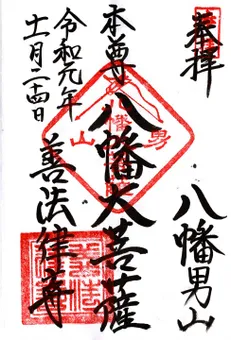 奉拝
八幡男山
本尊
八幡大菩薩
令和元年
十一月二十四日
善法律寺
男
山